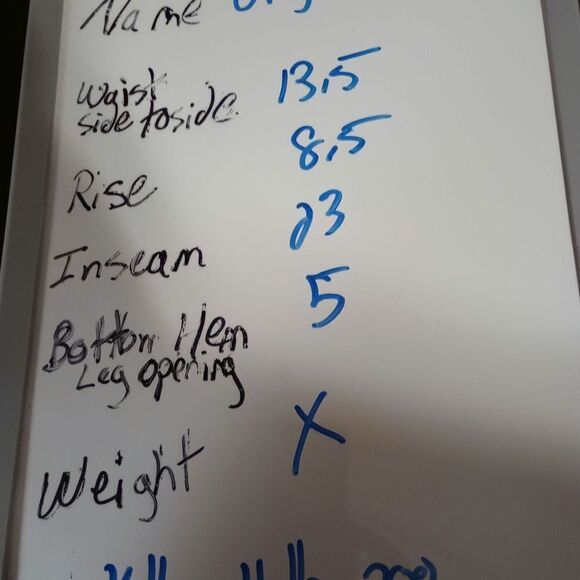 Name
Waist 13,5
side to side.
Rise 8,5
Inseam 23
Bottom Hem 5
Leg opening
Weight X